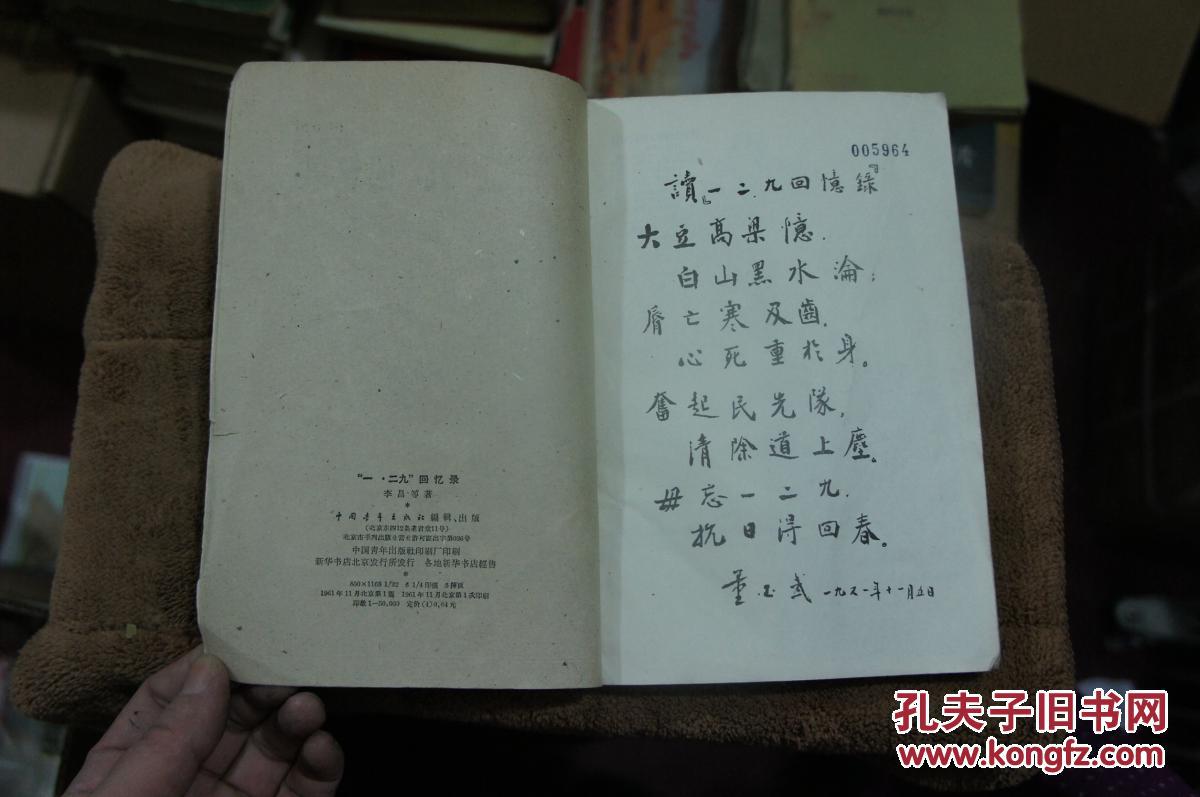 "一·二九"回忆录
李昌等著
*
中国青年出版社編輯、出版
(北京东四12条老君堂11号)
北京市书刊出版业营业許可証出字第036号
中国青年出版社印刷厂印刷
新华书店北京发行所发行 各地新华书店經售
*
850×1168 1/32 6 1/4印張
1961年11月北京第1版 1961年11月北京第1次印刷
印数1—50,000 定价(4)0.64元
005964
讀『一二.九回憶錄』
大豆高梁憶.
白山黑水淪;
脣亡寒及齒.
心死重於身。
奮起民先隊,
清除道上塵。
毋忘一二九.
抗日得回春。
董必武 一九六一年十一月五日
孔夫子旧书网
www.kongfz.com